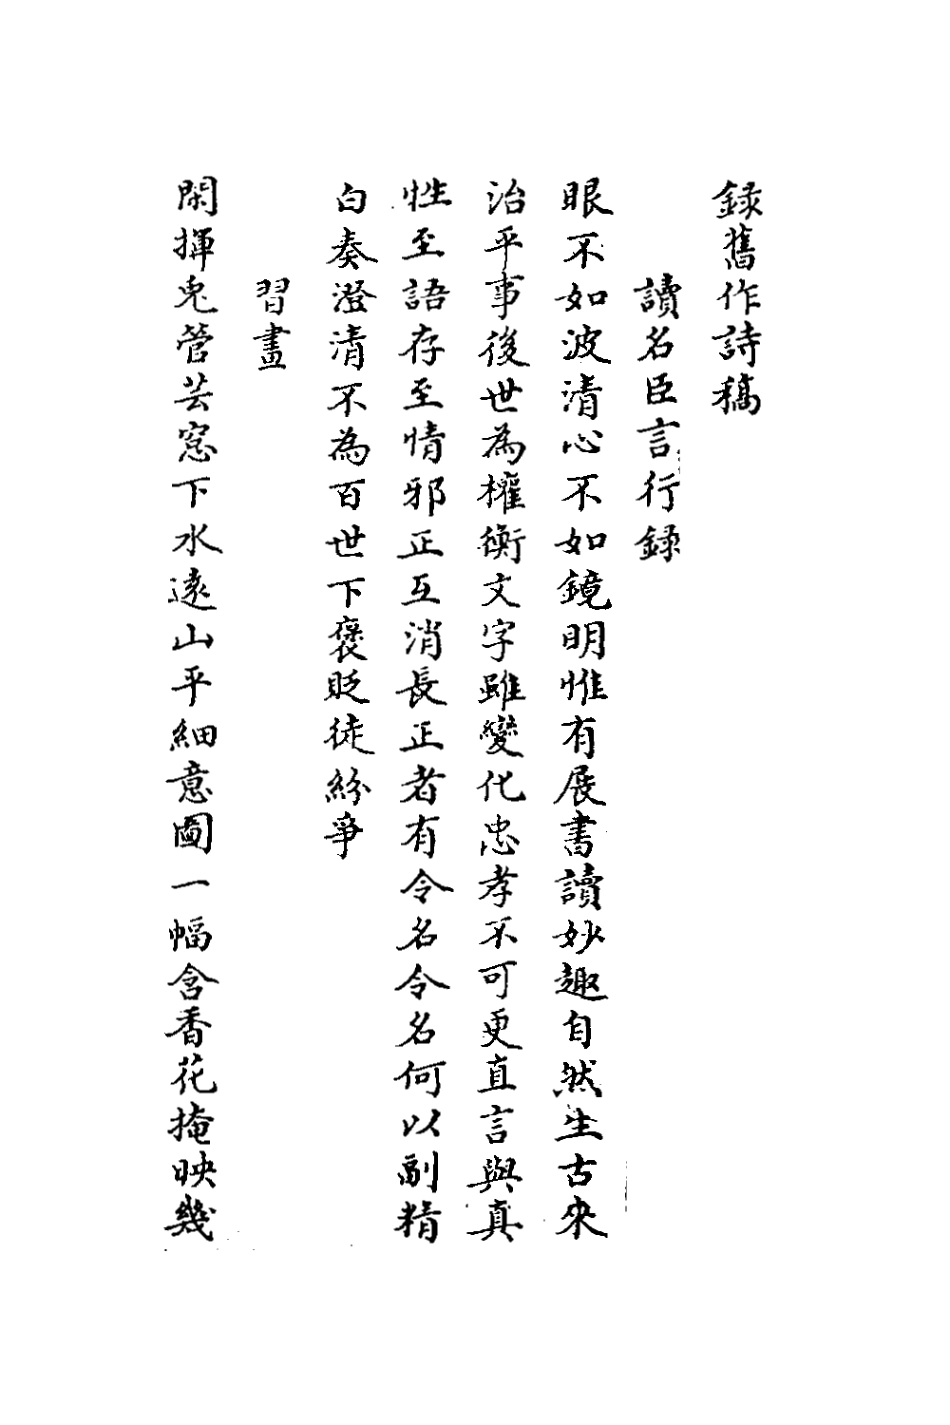 録舊作詩稿
讀名臣言行録
眼不如波清心不如鏡明惟有展書讀妙趣自然生古來
治平事後世為權衡文字雖變化忠孝不可更直言與真
性至語存至情邪正互消長正者有令名令名何以副精
白奏澄清不為百世下褒貶徒紛爭
習畫
閑揮兎管芸窓下水遠山平細意圖一幅含香花掩映幾